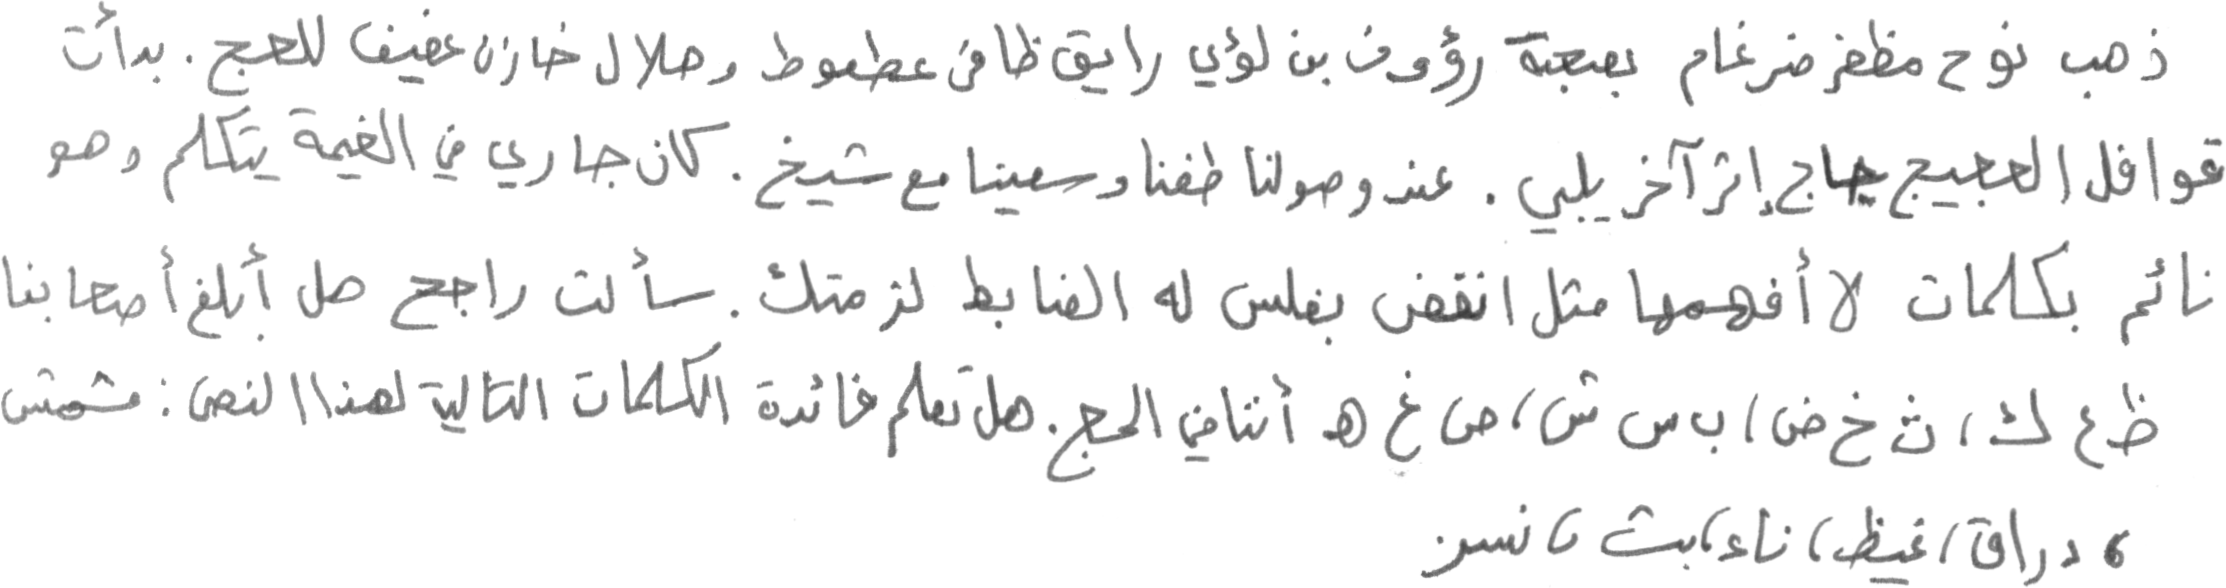 ذهب نوح مظفر ضرغام بصحبة رؤوف بن لؤي رايق ظافر عطعوط وهلال خازن عفيف للحج . بدأت
قوافل الحجيج حاج إثر آخر يلبي . عند وصولنا طفنا وسعينا مع شيخ . كان جاري في الخيمة يتكلم وهو
نائم بكلمات لا أفهمها مثل انقض بفلس له الضابط لزمتك . سألت راجح هل أبلغ أصحابنا
ظ ع ك ، ث خ ض ، ب س ش ، ص غ ه أننا في الحج . هل تعلم فائدة الكلمات التالية لهذا النص : مشمش
، دراق ، غيظ ، ناء ، بث ، نسر